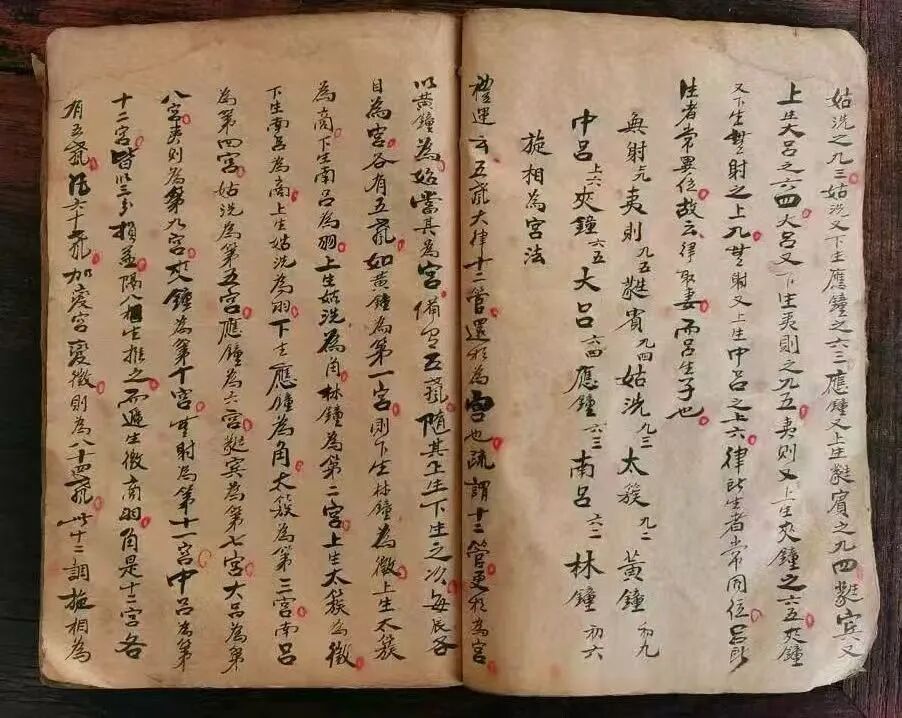 姑洗之九三姑洗又下生應鐘之六三應鐘又上生蕤賓之九四蕤賓又
上生大呂之六四大呂又下生夷則之九五夷則又上生夾鐘之六五夾鐘
又下生無射之上九無射又上生中呂之上六律所生者常同位呂所
生者常異位故云律娶妻而呂生子也
無射上九夷則九五蕤賓九四姑洗九三太簇九二黃鐘初九
中呂上六夾鐘六五大呂六四應鐘六三南呂六二林鐘初六
旋相為宮法
禮運云五聲六律十二管還相為宮也疏謂十二管更相為宮
以黃鐘為始當其為宮備有五聲隨其上生下生之次每辰各
自為宮各有五聲如黃鐘為第一宮則下生林鐘為徵上生太簇
為商下生南呂為羽上生姑洗為角林鐘為第二宮上生太簇為徵
下生南呂為商上生姑洗為羽下生應鐘為角太簇為第三宮南呂
為第四宮姑洗為第五宮應鐘為六宮蕤賓為第七宮大呂為第
八宮夷則為第九宮夾鐘為第十宮無射為第十一宮中呂為第
十二宮皆以三分損益隔八相生推之不過生徵商羽角是十二宮各
有五聲凡六十聲加變宮變徵則為八十四聲廿十二調旋相為